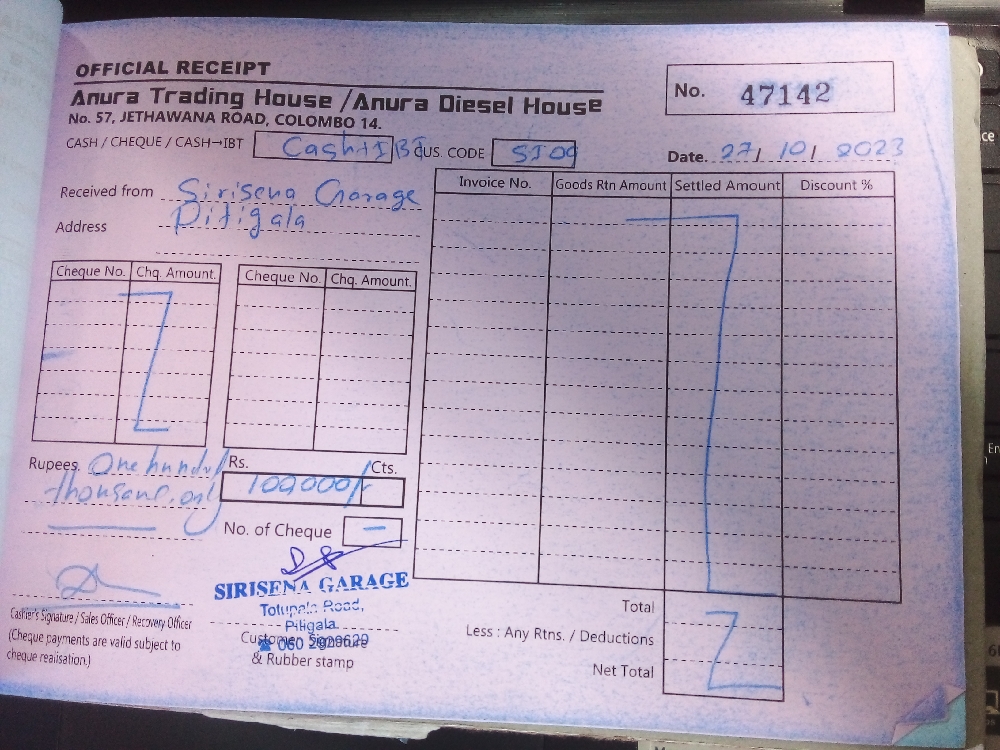 OFFICIAL RECEIPT
Anura Trading House / Anura Diesel House
No. 57, JETHAWANA ROAD, COLOMBO 14.
No. 47142
CASH / CHEQUE / CASH→IBT Cash+IBT CUS. CODE SI09
Date. 27/ 10/ 2023
Received from Sirisena Garage
Address Pitigala
Cheque No. Chq. Amount. Cheque No. Chq. Amount.
Invoice No. Goods Rtn Amount Settled Amount Discount %
Rupees. One hund
thousand. only
Rs. Cts.
100,000/-
No. of Cheque -
SIRISENA GARAGE
Totupala Road,
Pitigala.
Customer Signature
& Rubber stamp
Cashier's Signature / Sales Officer / Recovery Officer
(Cheque payments are valid subject to
cheque realisation.)
Total
Less : Any Rtns. / Deductions
Net Total